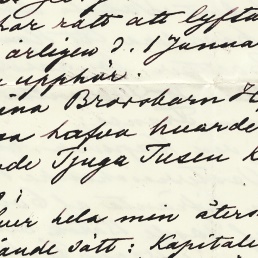 har rätt att lyfta
årligen d. 1 Janua
upphör.
ina Brorsbarn H
sa hafva hvarde
nde Tjugo Tusen K
fver hela min åters
jande sätt: Kapitale